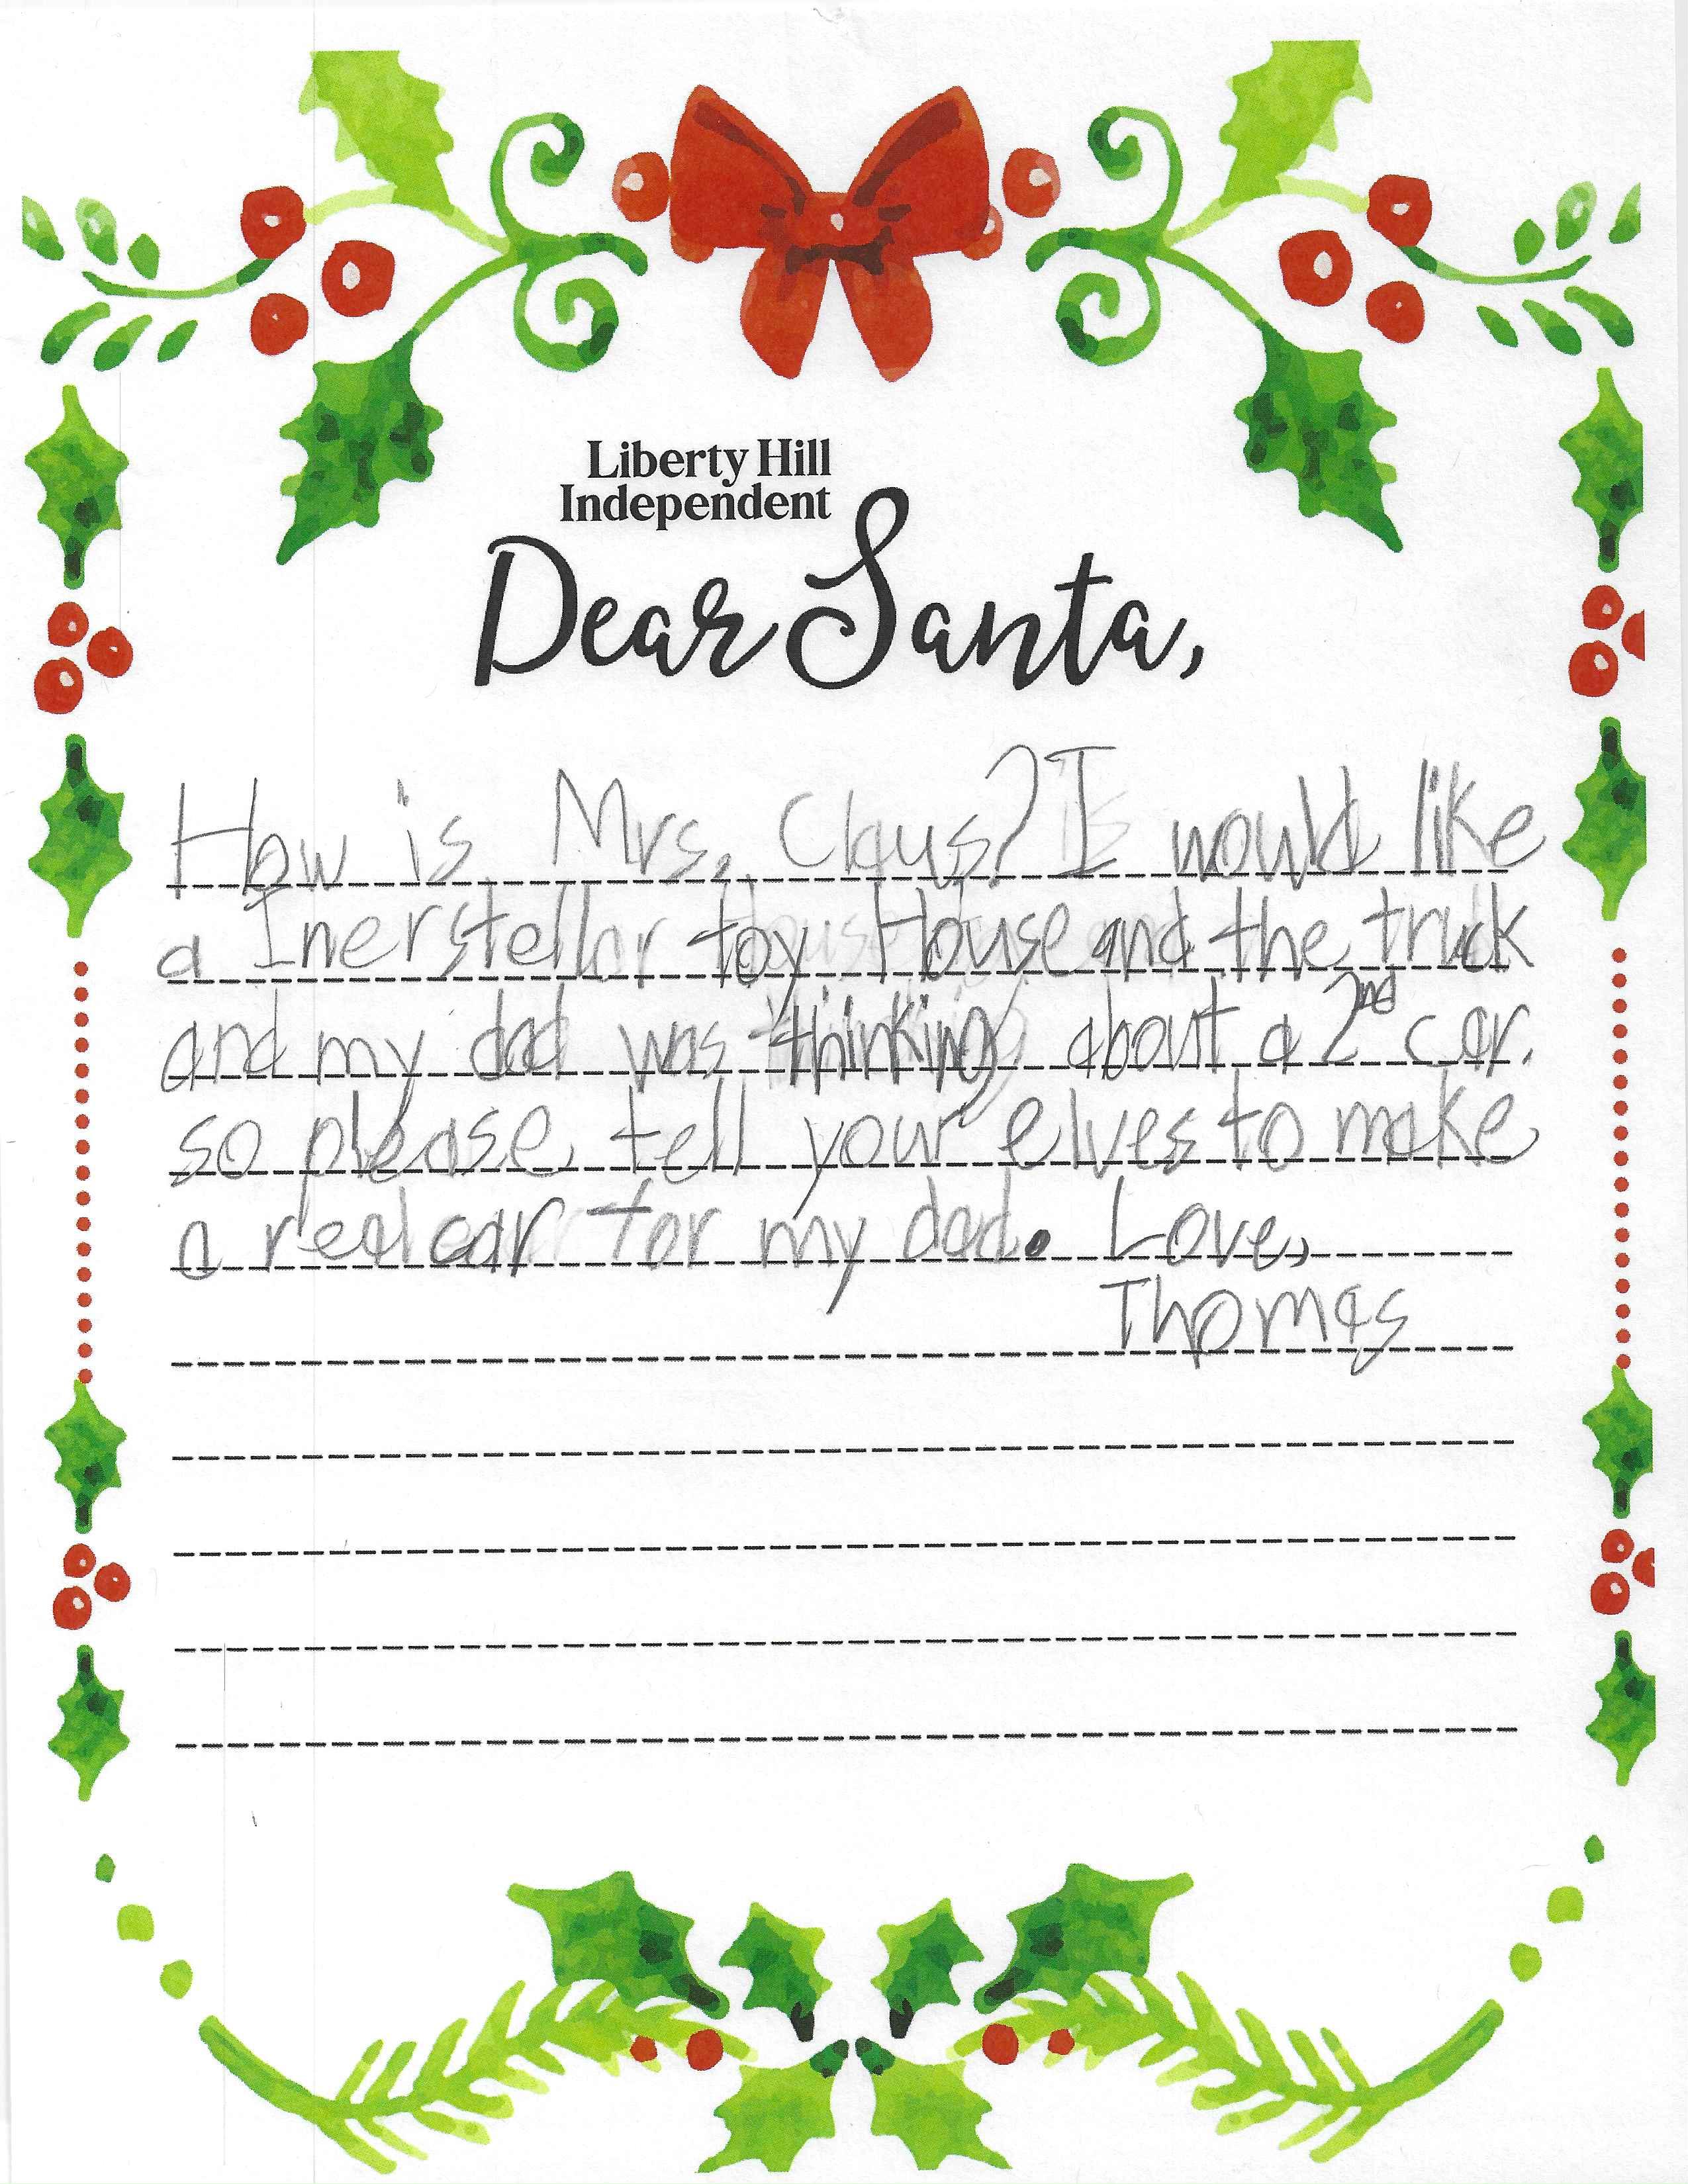 Liberty Hill
Independent
Dear Santa,
How is Mrs. Claus? I would like
a Inerstellar toy House and the truck
and my dad was thinking about a 2nd car.
so please tell your elves to make
a real car for my dad. Love,
Thomas